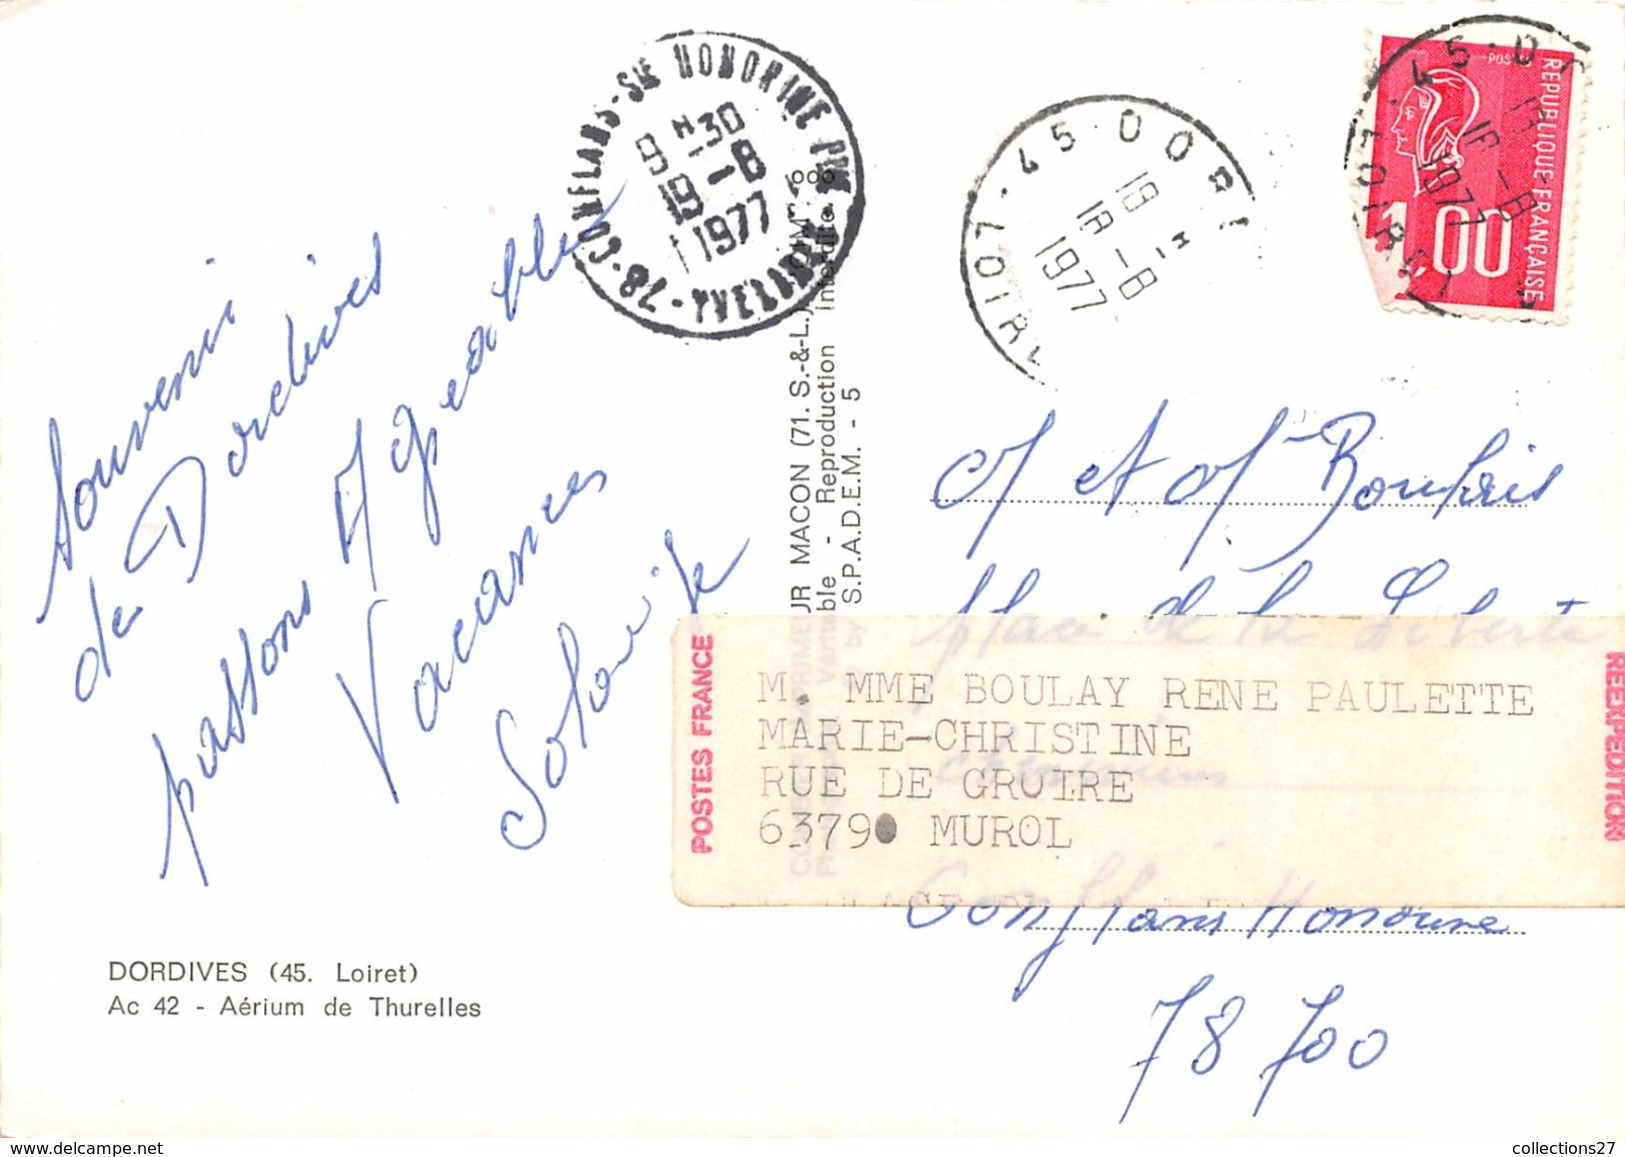 Souvenir
de Dordives
passons Agreables
Vacances
78-CONFLANS-STE HONORINE PPAL
9 H 30
19 -8
1977
YVELINES
45 DOR
107
LOIRET
18 H
18 -8
1977
45 - DOR
18 -8
1977
LOIRET
POSTES
REPUBLIQUE FRANÇAISE
1,00
MACON (71. S.-&-L.)
Reproduction interdite
by S.P.A.D.E.M. - 5
M et Mme
place de la Liberté
POSTES FRANCE
M. MME BOULAY RENE PAULETTE
MARIE-CHRISTINE
RUE DE GROIRE
63790 MUROL
REEXPEDITION
Conflans Honorine
78 700
DORDIVES (45. Loiret)
Ac 42 - Aérium de Thurelles
collections27